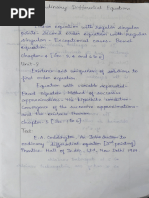 Ordinary Differential Equations
Linear equation with regular singular
points - Second order equations with regular
singular - Exceptional cases - Bessel
Equation
chapter : 4 (Sec
Unit-5
Existence and uniqueness of solutions to
first order equation
Equation with variable separated -
Exact Equation - Method of successive
approximations - the Lipschitz condition -
convergence of the successive approximations -
and the existence theorem
chapter : 5 (Sec
Text
E. A. Coddington, An Introduction to
ordinary differential equations (3rd printing)
Prentice-Hall of India Ltd., New Delhi 1987